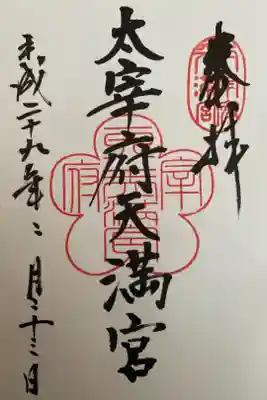 奉拝
太宰府天満宮
平成二十九年二月二十三日